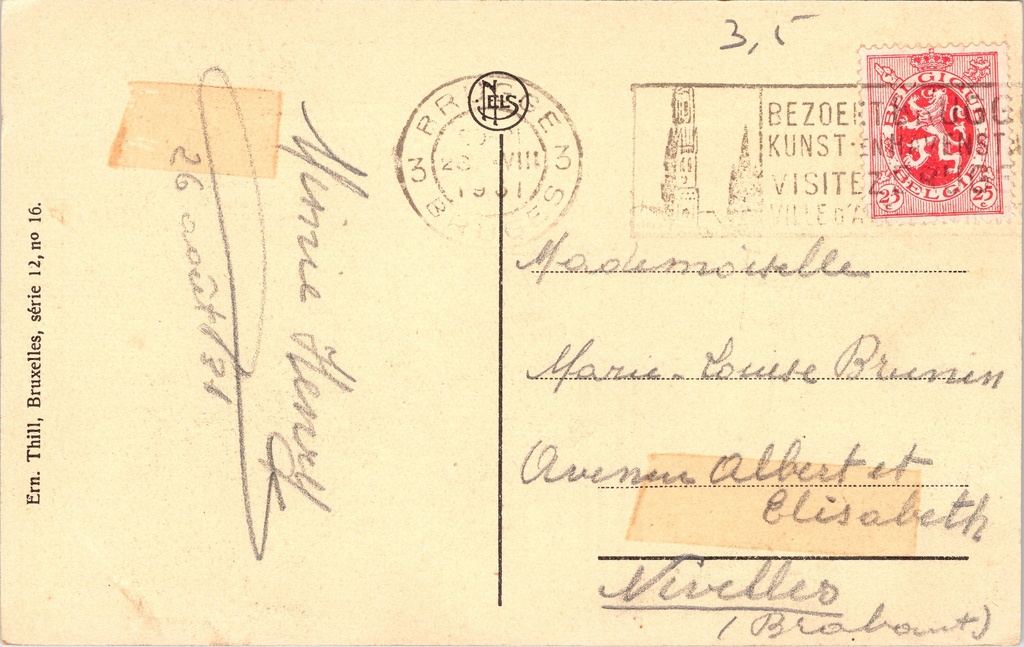 Ern. Thill, Bruxelles, série 12, nº 16.
26 août 31
Ninie Henry
NELS
3,5
3 BRUGGE 3
VIII
1931
BRUGES
BEZOEKT BRUGGE
KUNST-EN
VISITEZ
VILLE D'A
BELGIQUE
BELGIE
25 c 25 c
Mademoiselle
Marie-Louise Brunin
Avenue Albert et
Elisabeth
Nivelles
(Brabant)